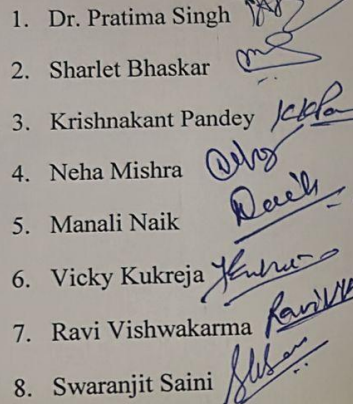 1. Dr. Pratima Singh
2. Sharlet Bhaskar
3. Krishnakant Pandey
4. Neha Mishra
5. Manali Naik
6. Vicky Kukreja
7. Ravi Vishwakarma
8. Swaranjit Saini